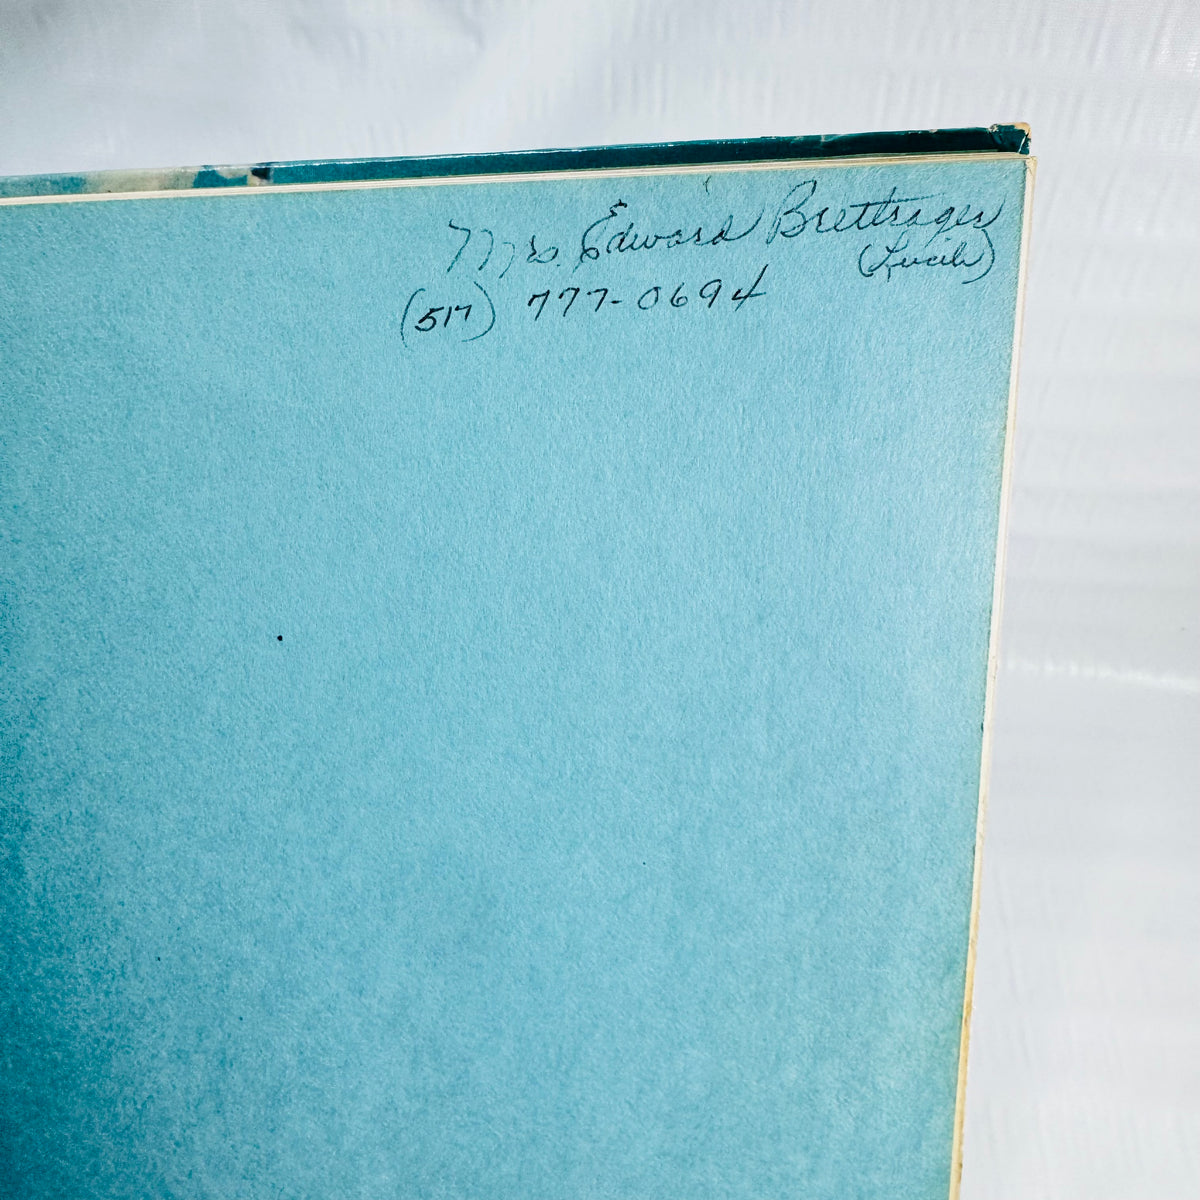 Mrs. Edward Brettrager
(Lucile)
(517) 777-0694